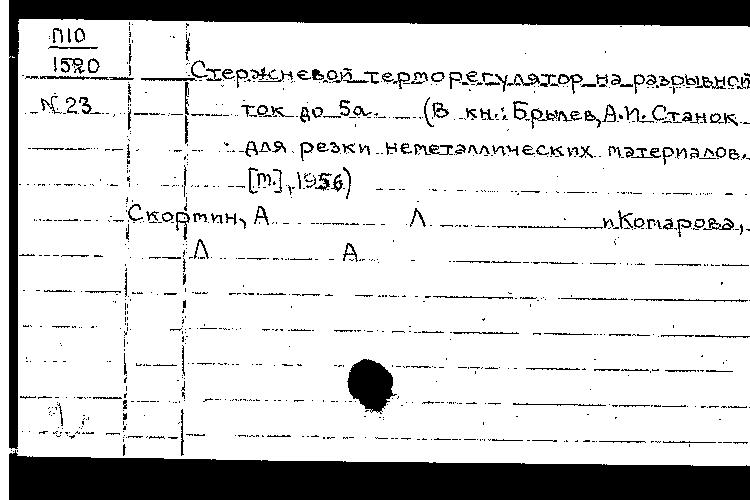 П10
1520
Стержневой терморегулятор на разрывной
N 23
ток до 5а. (В кн.: Брылев, А.И. Станок
для резки неметаллических материалов.
[М.], 1956)
Скортин, А Л и Комарова,
Л А